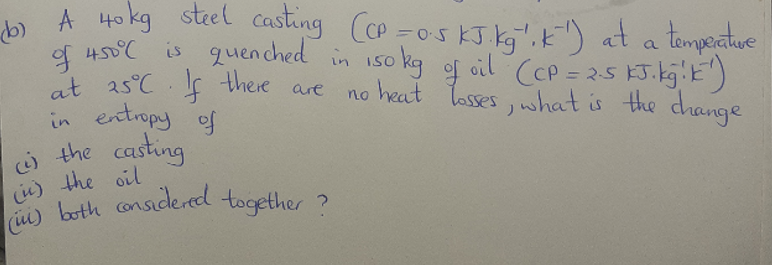 (b) A 40kg steel casting (CP = 0.5 kJ.kg⁻¹.K⁻¹) at a temperature
of 450°C is quenched in 150 kg of oil (CP = 2.5 kJ.kg⁻¹K⁻¹)
at 25°C. If there are no heat losses, what is the change
in entropy of
(i) the casting
(ii) the oil
(iii) both considered together ?